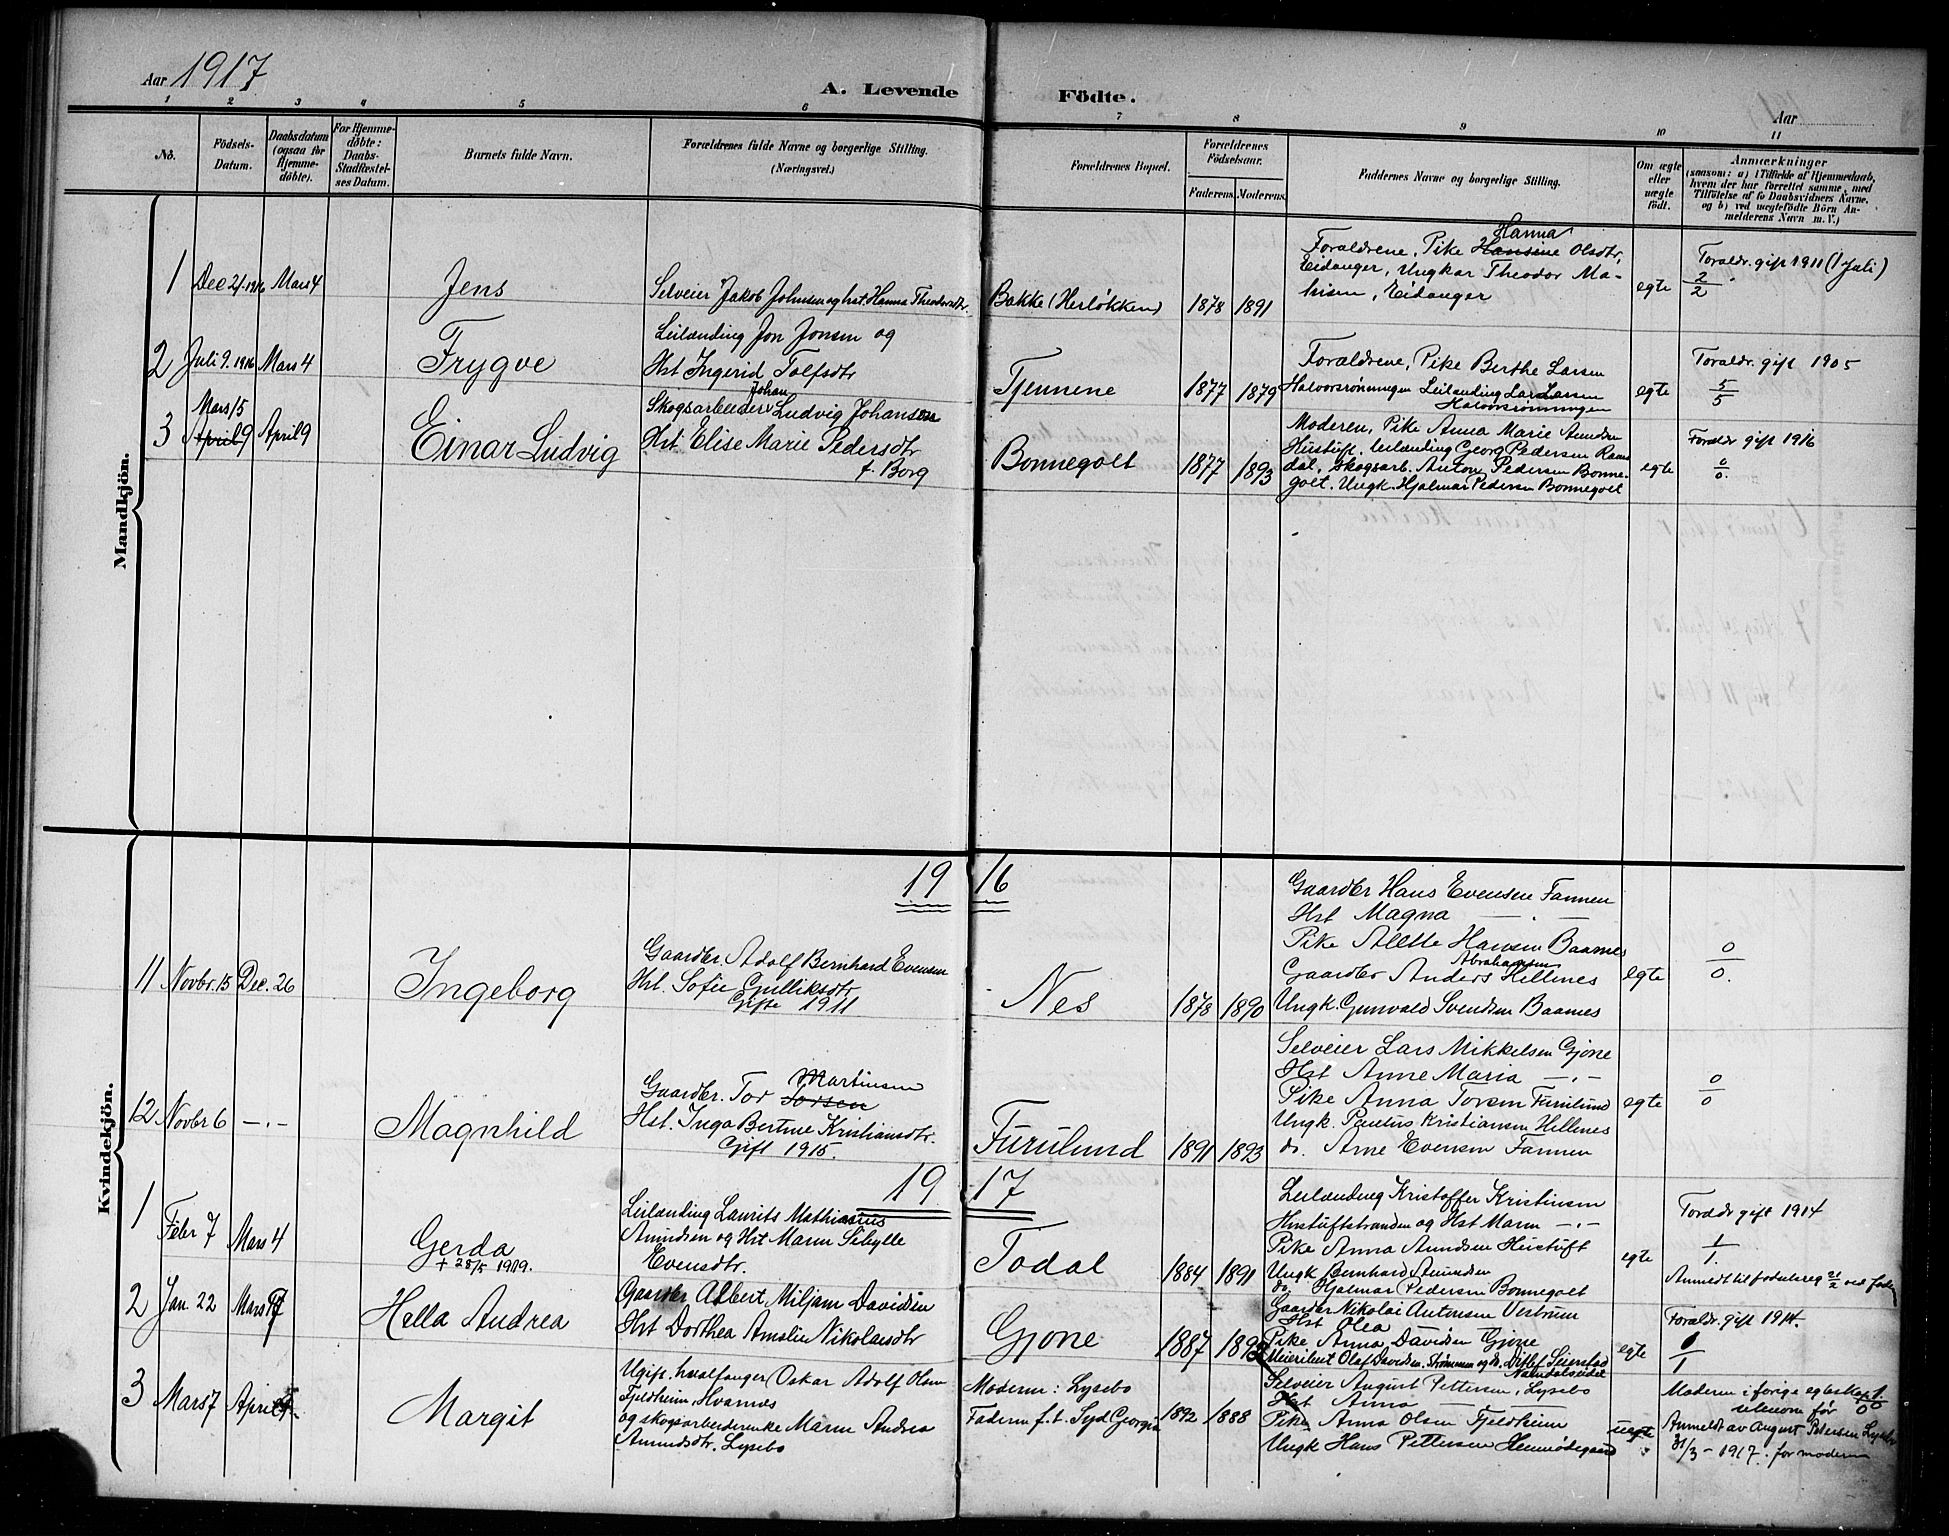 Aar 1917
A. Levende Födte.
Aar
1 2 3 4 5 6 7 8 9 10 11
No.
Födsels-Datum.
Daabsdatum (ogsaa for Hjemme-döbte).
For Hjemme-döbte: Daabs-Stadfæstel-ses Datum.
Barnets fulde Navn.
Forældrenes fulde Navne og borgerlige Stilling. (Næringsvei.)
Forældrenes Bopæl.
Forældrenes Födselsaar.
Faderens. Moderens.
Faddernes Navne og borgerlige Stilling.
Om ægte eller uægte födt.
Anmærkninger
(saasom: a) i Tilfælde af Hjemmedaab,
hvem der har forrettet samme, med
Tilföielse af to Daabsvidners Navne,
og b) ved uægtefödte Börn An-
melderens Navn m. V.)
Mandkjön.
1 Dec 21. 1916 Mars 4
Jens
Selveier Jakob Johnsen og hst. Hanna Theodorsdtr.
Bakke (Herløkken)
1878 1891
Hanna
Forældrene, Pike Hansine Olsdtr,
Eidanger, Ungkar Theodor Ma-
tisen, Eidanger
egte
Forældr. gift 1911 (1 Juli)
2/2
2 Juli 9. 1916 Mars 4
Trygve
Leilænding Jon Jonsen og
Hst Ingerid Tolfsdtr
Tjennene
1877 1879
Forældrene, Pike Berthe Larsen
Halvorsrønningen Leilænding Lars Larsen
Halvorsrønningen
egte
Forældr. gift 1905
5/5
3 Mars 15
April 9 April 9
Einar Ludvig
Johan
Skogsarbeider Ludvig Johansen
Hst Elise Marie Pedersdtr
f. Borg
Bonnegolt
1877 1893
Moderen, Pike Anna Marie Amundsen
Hustuft, leilænding Georg Pedersen Rams
dal, Skogsarb. Anton Pedersen Bonne-
golt. Ungk. Hjalmar Pedersen Bonnegolt
egte
Forældr gift 1916
0/0.
Kvindekjön.
19 16
11 Novbr. 15 Dec. 26
Ingeborg
Gaardbr. Adolf Bernhard Evensen
Hst. Sofie Gulliksdtr
Gifte 1911
Nes
1878 1890
Gaardbr Hans Evensen Fannen
Hst Magna — . —
Pike Alette Hansen Baamnes
Abrahamsen
Gaardbr Anders Hellenes
Ungk. Gunvald Svendsen Baamnes
egte
0/0.
12 Novbr 6 — . —
Magnhild
Martinsen
Gaardbr. Tor Torsen
Hst. Inga Bertine Kristiansdtr.
Gift 1915.
Furulund
1891 1893
Selveier Lars Mikkelsen Gjone
Hst Anne Maria — . —
Pike Anna Torsen Furulund
Ungk. Paulus Kristiansen Hellenes
do. Arne Evensen Fannen
egte
0/0
19 17
1 Febr 7 Mars 4
Gerda
+ 28/5 1919.
Leilænding Laurits Mathiasius
Amundsen og Hst Maren Sibylle
Evensdtr.
Todal
1884 1891
Leilænding Kristoffer Kristensen
Hustuftstranden og Hst Maren — . —
Pike Anna Amundsen Hustuft
Ungk Bernhard Amundsen
do. Hjalmar Pedersen Bonnegolt
egte
Forældr gift 1914
1/1.
Anmeldt til fødselsreg 21/2 ved faderen
2 Jan. 22 Mars
Hella Andrea
Gaardbr Albert Miljam Davidsen
Hst Dorthea Amalie Nikolaisdtr
Gjone
1887
Gaardbr Nikolai Antonsen Vestrum
Hst Olea
Pike Anna Davidsen Gjone
Meieribest Olaf Davidsen. Strømmen og do. Detlef Seierstad
Namdalseidet
egte
Forældr. gift 1914.
0/1
3 Mars 7 April
Margit
Ugift. hvalfanger Oskar Adolf Olsen
Fjeldheim, Hvarnes
og skogsarbeiderenke Maren Andrea
Amundsdtr. Lysebo
Moderen: Lysebo
Faderen f. t. Syd Georgia
1892 1888
Selveier August Pettersen, Lysebo
Hst Anna —
Pike Anna Olsen Fjeldheim
Ungk Hans Pettersen Hemnødegaard
uegte
Moderen i forige egteskap 1.
utenom før 0/0
Anmeldt av August Petersen Lysebo
31/3 - 1917. for moderen